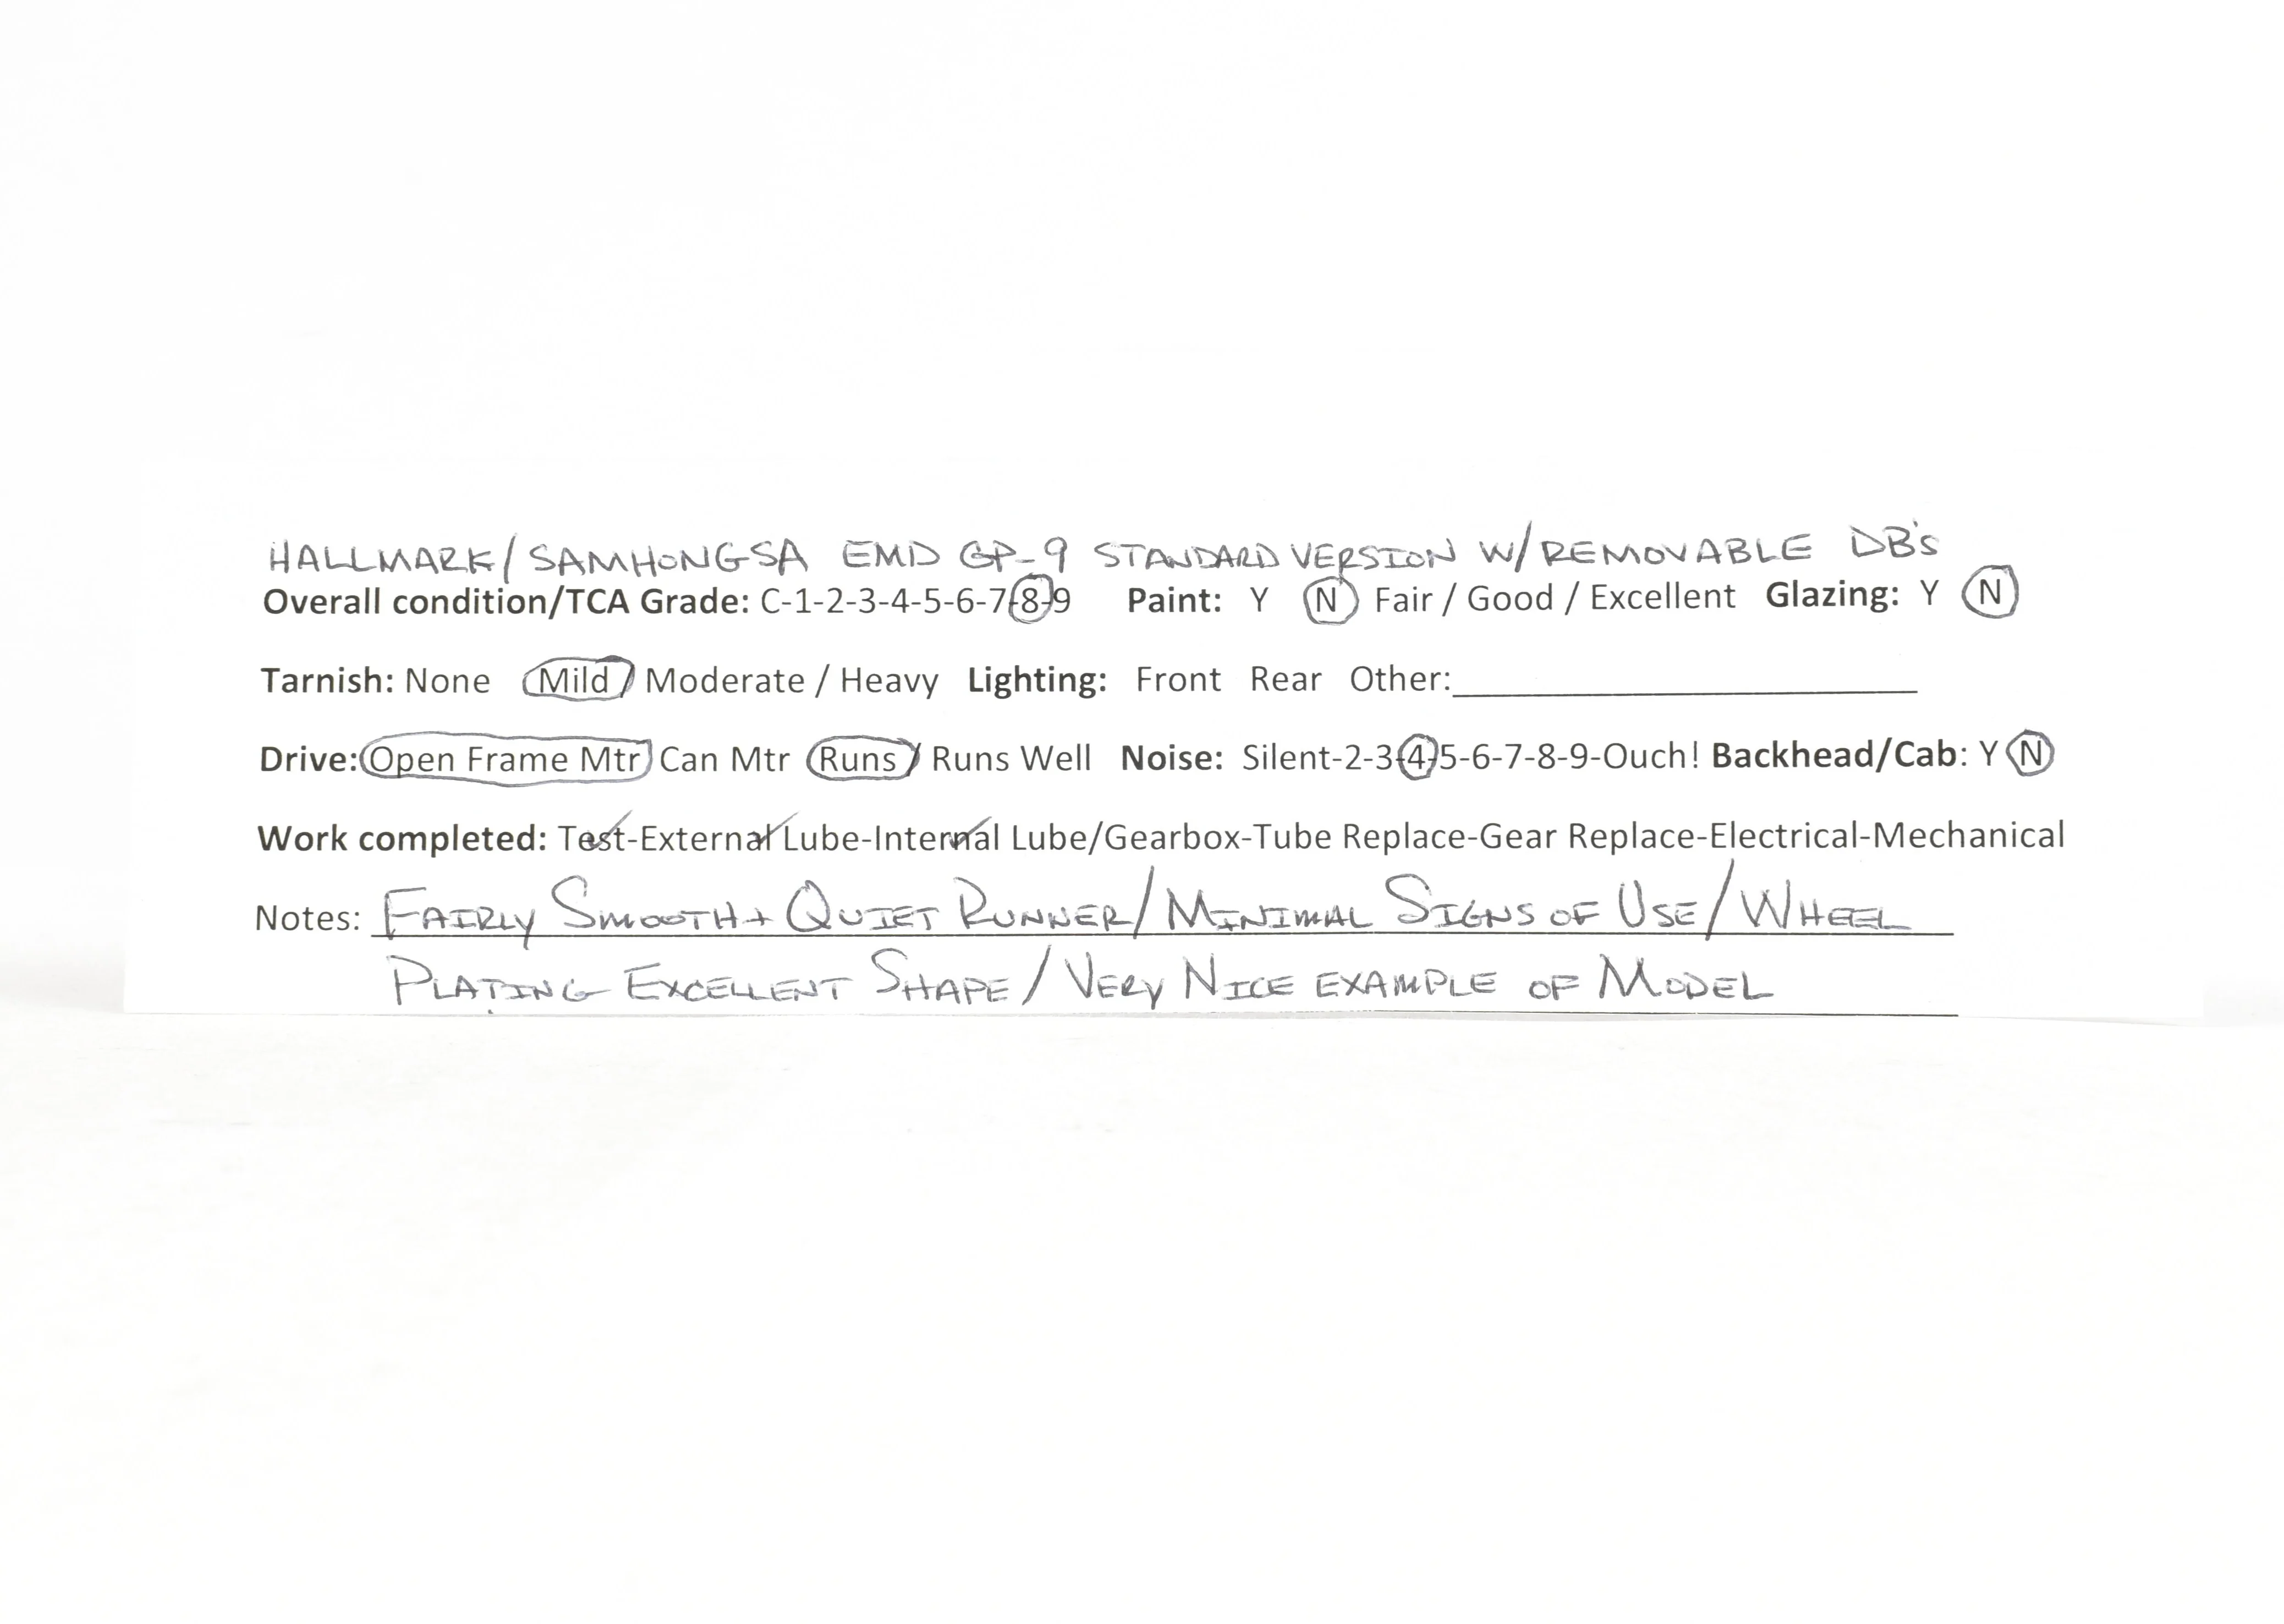 HALLMARK/SAMHONGSA EMD GP-9 STANDARD VERSION W/REMOVABLE DB's
Overall condition/TCA Grade: C-1-2-3-4-5-6-7-8-9 Paint: Y N Fair / Good / Excellent Glazing: Y N
Tarnish: None Mild / Moderate / Heavy Lighting: Front Rear Other:
Drive: Open Frame Mtr Can Mtr Runs / Runs Well Noise: Silent-2-3-4-5-6-7-8-9-Ouch! Backhead/Cab: Y N
Work completed: Test-External Lube-Internal Lube/Gearbox-Tube Replace-Gear Replace-Electrical-Mechanical
Notes: FAIRLY SMOOTH + QUIET RUNNER/MINIMAL SIGNS OF USE/WHEEL
PLATING EXCELLENT SHAPE/VERY NICE EXAMPLE OF MODEL